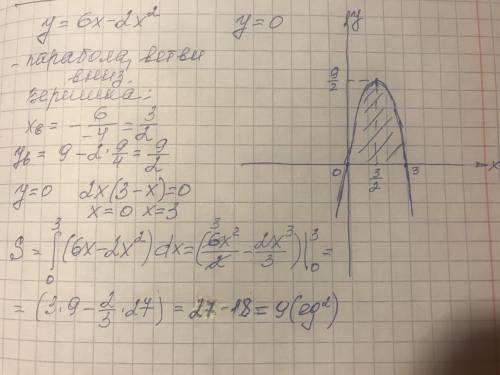 y = 6x - 2x² y = 0
- парабола, ветви
вниз.
Вершина:
x_в = -6/-4 = 3/2
y_в = 9 - 2·9/4 = 9/2
y = 0 2x(3 - x) = 0
x = 0 x = 3
S = ∫₀³ (6x - 2x²) dx = (6x²/2 - 2x³/3) |₀³ =
= (3·9 - 2/3·27) = 27 - 18 = 9 (ед²)
y
9/2
0 3/2 3 x